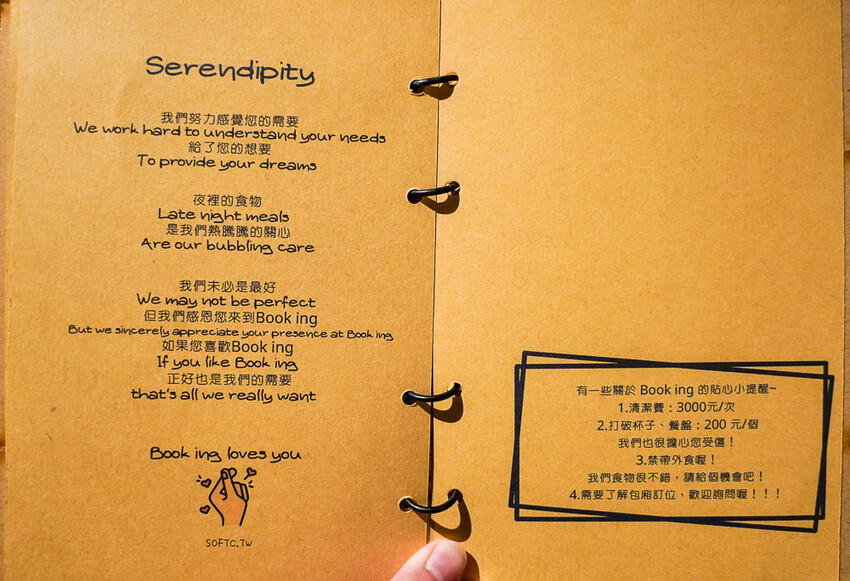 Serendipity
我們努力感覺您的需要
We work hard to understand your needs
給了您的想要
To provide your dreams
夜裡的食物
Late night meals
是我們熱騰騰的關心
Are our bubbling care
我們未必是最好
We may not be perfect
但我們感恩您來到Book ing
But we sincerely appreciate your presence at Book ing
如果您喜歡Book ing
If you like Book ing
正好也是我們的需要
that's all we really want
Book ing loves you
SOFTC.TW
有一些關於 Book ing 的貼心小提醒~
1.清潔費：3000元/次
2.打破杯子、餐盤：200 元/個
我們也很擔心您受傷！
3.禁帶外食喔！
我們食物很不錯，請給個機會吧！
4.需要了解包廂訂位，歡迎詢問喔！！！